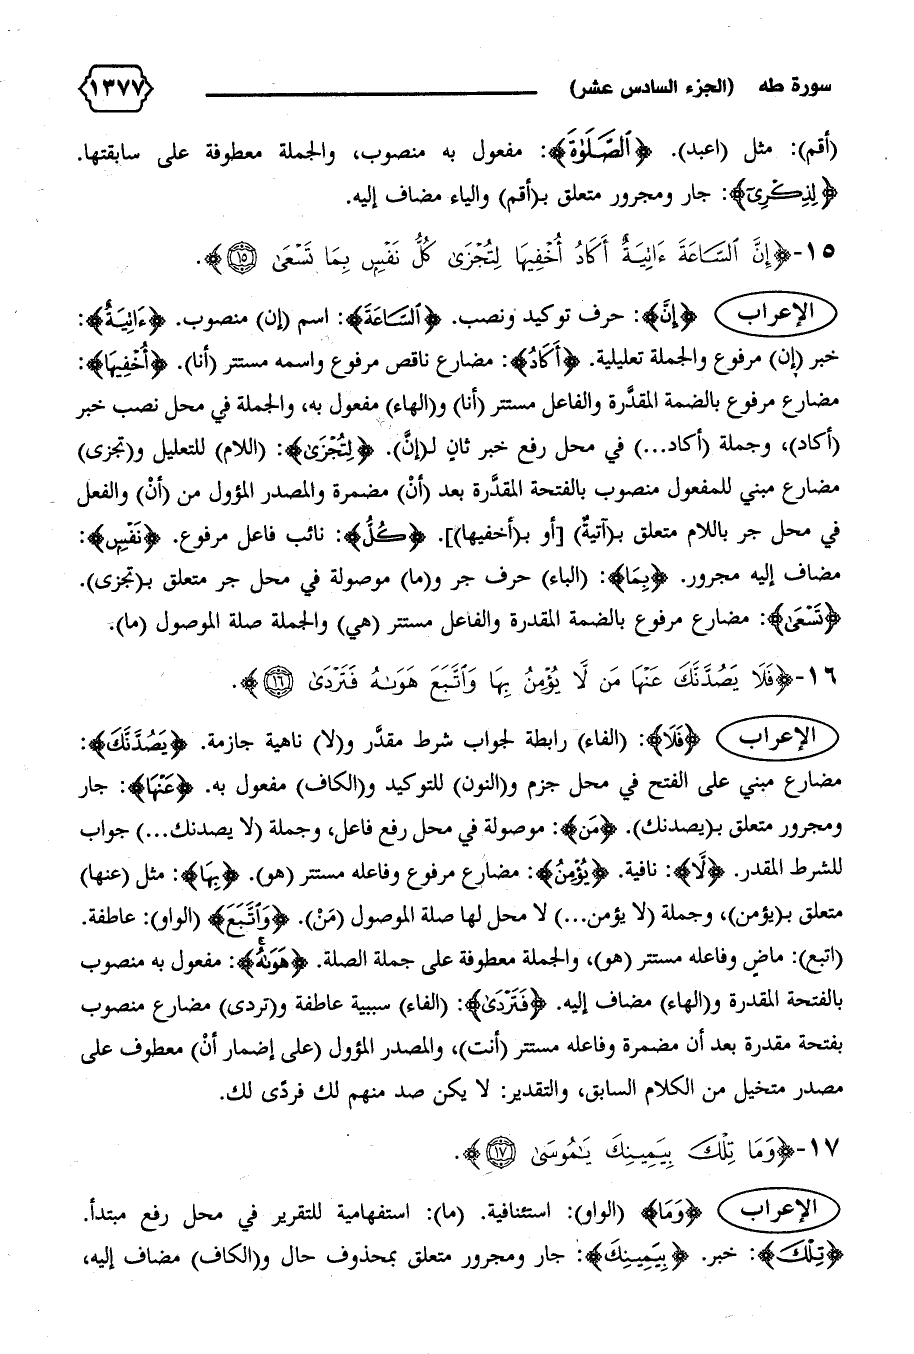 سورة طه (الجزء السادس عشر) ١٣٧٧
(أقم): مثل (اعبد). ﴿ٱلصَّلَوٰةَ﴾: مفعول به منصوب، والجملة معطوفة على سابقتها.
﴿لِذِكْرِىٓ﴾: جار ومجرور متعلق بـ(أقم) والياء مضاف إليه.
١٥-﴿إِنَّ ٱلسَّاعَةَ ءَاتِيَةٌ أَكَادُ أُخْفِيهَا لِتُجْزَىٰ كُلُّ نَفْسٍ بِمَا تَسْعَىٰ ١٥﴾.
الإعراب ﴿إِنَّ﴾: حرف توكيد ونصب. ﴿ٱلسَّاعَةَ﴾: اسم (إن) منصوب. ﴿ءَاتِيَةٌ﴾:
خبر (إن) مرفوع والجملة تعليلية. ﴿أَكَادُ﴾: مضارع ناقص مرفوع واسمه مستتر (أنا). ﴿أُخْفِيهَا﴾:
مضارع مرفوع بالضمة المقدَّرة والفاعل مستتر (أنا) و(الهاء) مفعول به، والجملة في محل نصب خبر
(أكاد)، وجملة (أكاد...) في محل رفع خبر ثانٍ لـ(إنَّ). ﴿لِتُجْزَىٰ﴾: (اللام) للتعليل و(تجزى)
مضارع مبني للمفعول منصوب بالفتحة المقدَّرة بعد (أنْ) مضمرة والمصدر المؤول من (أنْ) والفعل
في محل جر باللام متعلق بـ(آتيةٌ) [أو بـ(أخفيها)]. ﴿كُلُّ﴾: نائب فاعل مرفوع. ﴿نَفْسٍ﴾:
مضاف إليه مجرور. ﴿بِمَا﴾: (الباء) حرف جر و(ما) موصولة في محل جر متعلق بـ(تجزى).
﴿تَسْعَىٰ﴾: مضارع مرفوع بالضمة المقدرة والفاعل مستتر (هي) والجملة صلة الموصول (ما).
١٦-﴿فَلَا يَصُدَّنَّكَ عَنْهَا مَن لَّا يُؤْمِنُ بِهَا وَٱتَّبَعَ هَوَىٰهُ فَتَرْدَىٰ ١٦﴾.
الإعراب ﴿فَلَا﴾: (الفاء) رابطة لجواب شرط مقدَّر و(لا) ناهية جازمة. ﴿يَصُدَّنَّكَ﴾:
مضارع مبني على الفتح في محل جزم و(النون) للتوكيد و(الكاف) مفعول به. ﴿عَنْهَا﴾: جار
ومجرور متعلق بـ(يصدنك). ﴿مَن﴾: موصولة في محل رفع فاعل، وجملة (لا يصدنك...) جواب
للشرط المقدر. ﴿لَّا﴾: نافية. ﴿يُؤْمِنُ﴾: مضارع مرفوع وفاعله مستتر (هو). ﴿بِهَا﴾: مثل (عنها)
متعلق بـ(يؤمن)، وجملة (لا يؤمن...) لا محل لها صلة الموصول (مَنْ). ﴿وَٱتَّبَعَ﴾ (الواو): عاطفة.
(اتبع): ماضٍ وفاعله مستتر (هو)، والجملة معطوفة على جملة الصلة. ﴿هَوَىٰهُ﴾: مفعول به منصوب
بالفتحة المقدرة و(الهاء) مضاف إليه. ﴿فَتَرْدَىٰ﴾: (الفاء) سببية عاطفة و(تردى) مضارع منصوب
بفتحة مقدرة بعد أن مضمرة وفاعله مستتر (أنت)، والمصدر المؤول (على إضمار أنْ) معطوف على
مصدر متخيل من الكلام السابق، والتقدير: لا يكن صد منهم لك فردًى لك.
١٧-﴿وَمَا تِلْكَ بِيَمِينِكَ يَٰمُوسَىٰ ١٧﴾.
الإعراب ﴿وَمَا﴾ (الواو): استئنافية. (ما): استفهامية للتقرير في محل رفع مبتدأ.
﴿تِلْكَ﴾: خبر. ﴿بِيَمِينِكَ﴾: جار ومجرور متعلق بمحذوف حال و(الكاف) مضاف إليه،